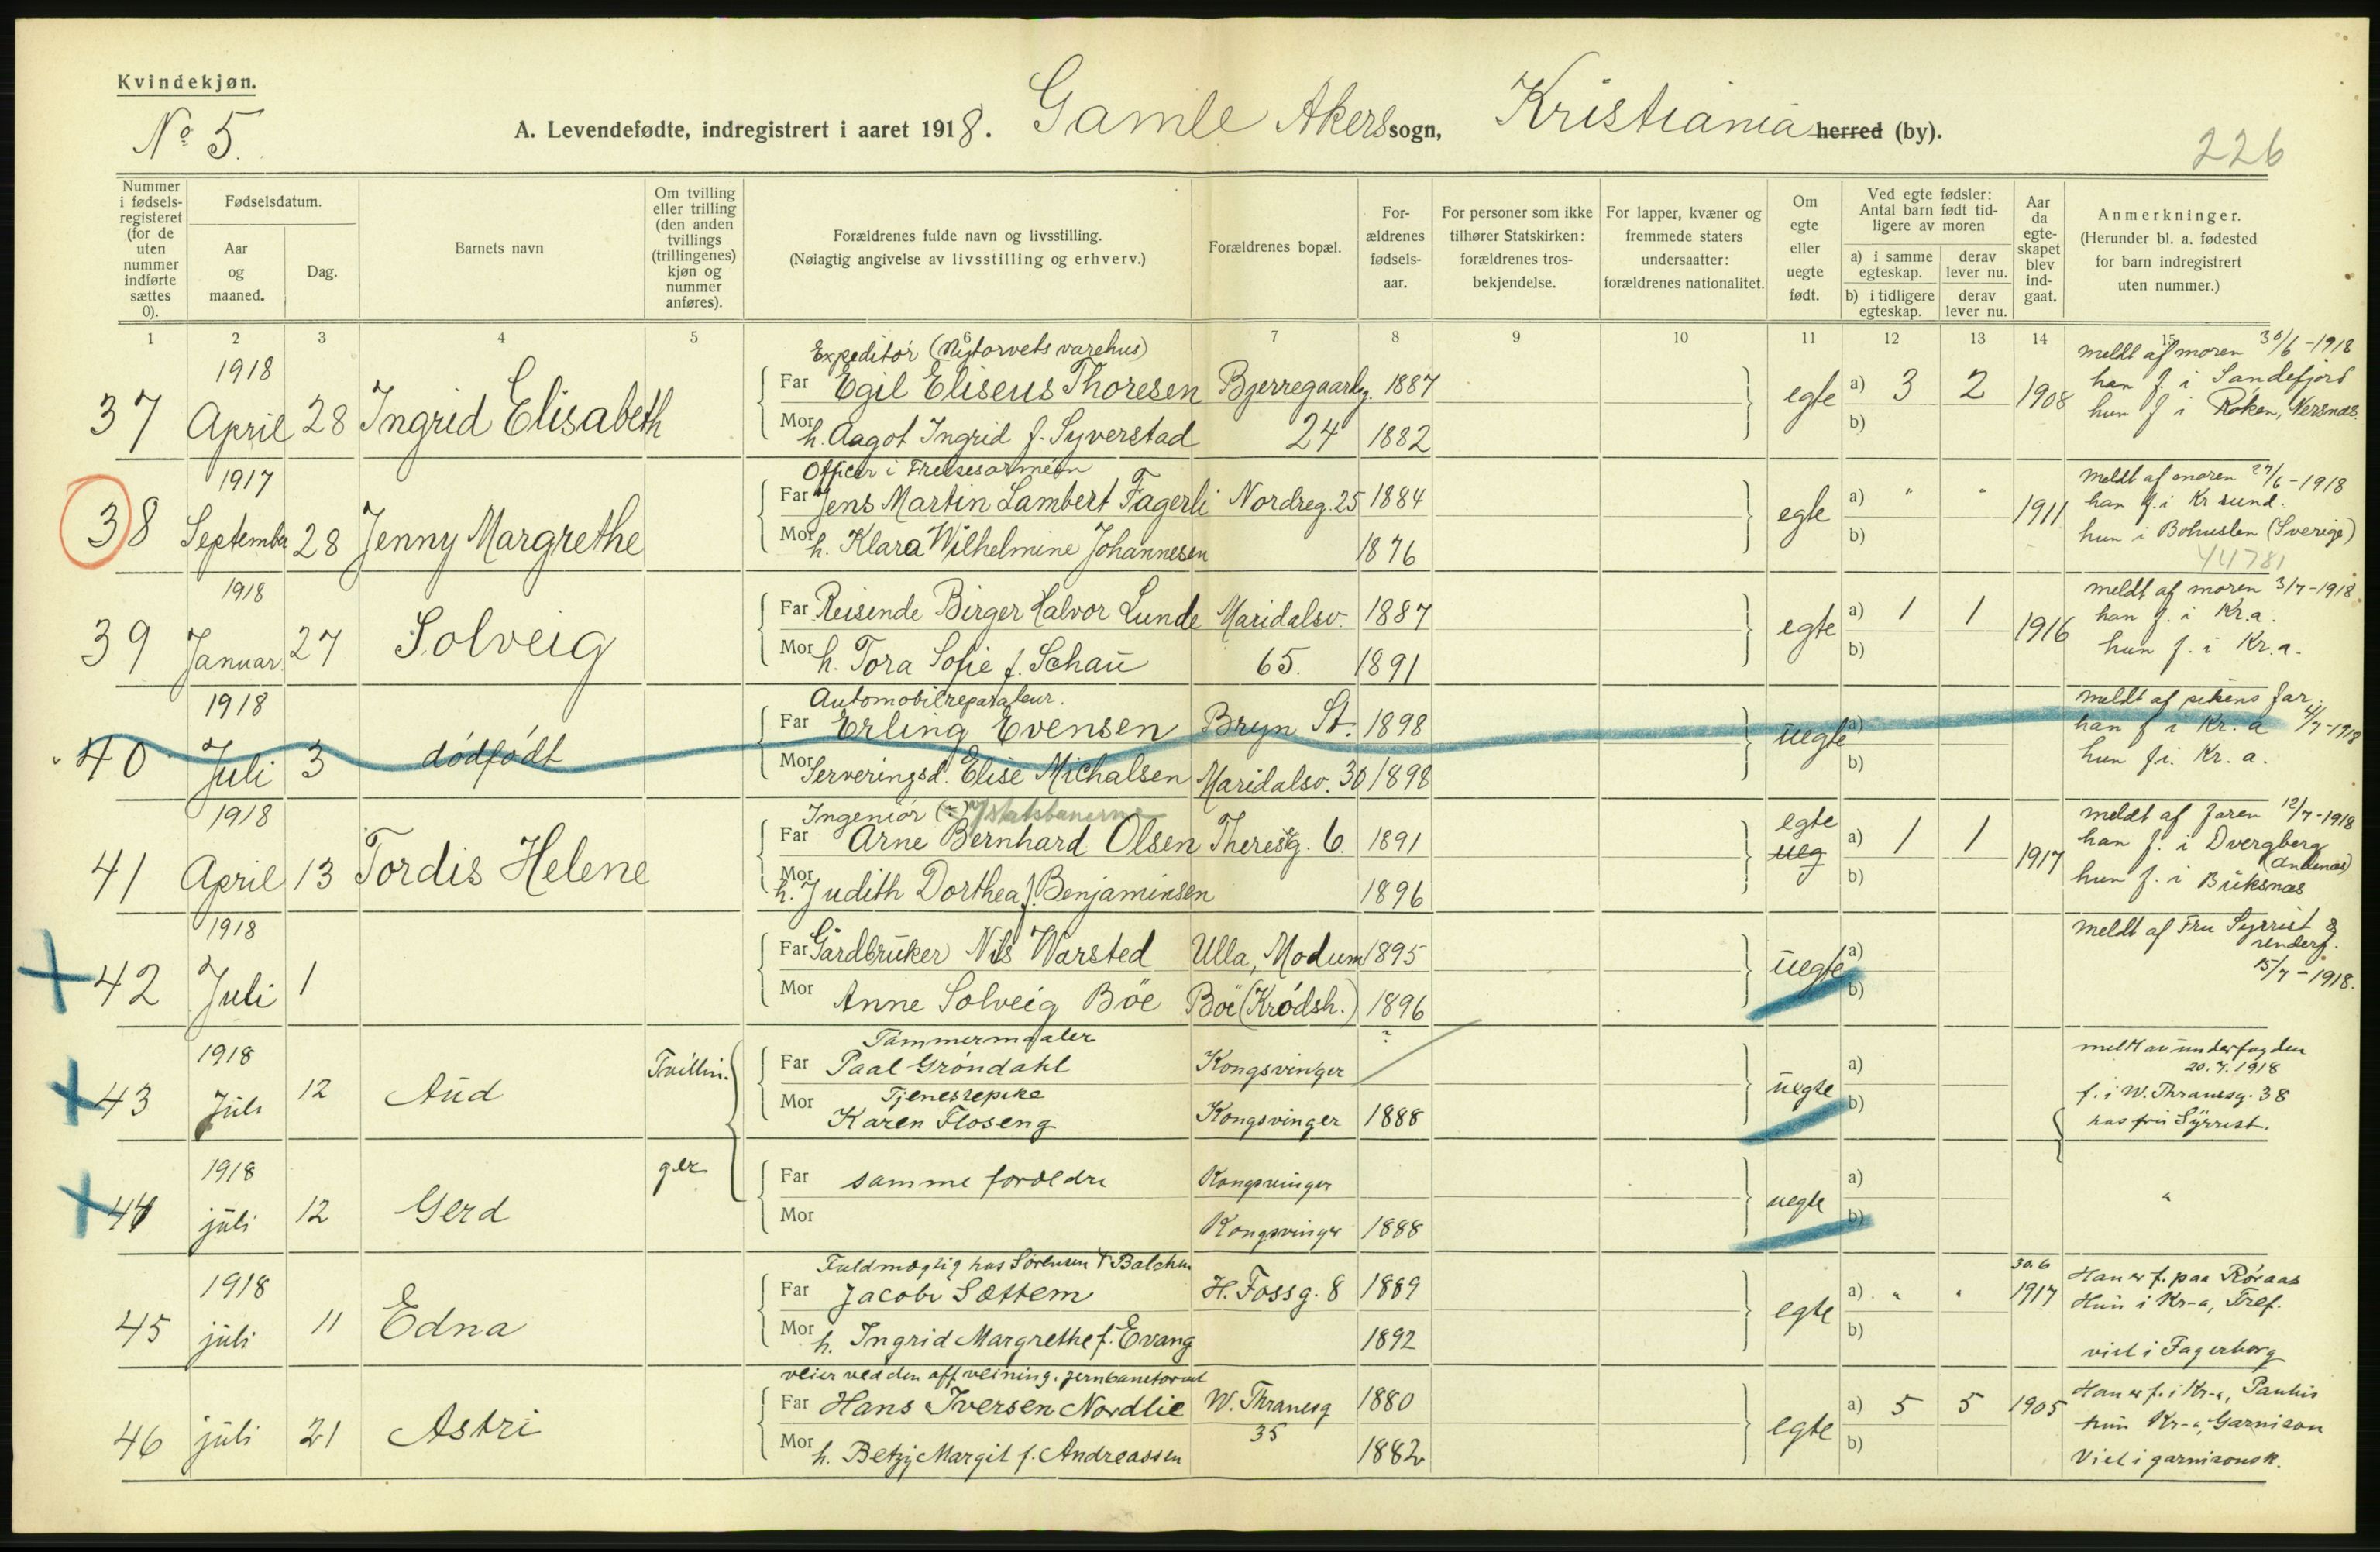 Kvindekjøn.
No 5.
A. Levendefødte, indregistrert i aaret 1918. Gamle Akers sogn, Kristiania herred (by).
226
Nummer i fødsels-registeret (for de uten nummer indførte sættes 0).
Fødselsdatum.
Aar og maaned.
Dag.
Barnets navn
Om tvilling eller trilling (den anden tvillings (trillingenes) kjøn og nummer anføres).
Forældrenes fulde navn og livsstilling.
(Nøiagtig angivelse av livsstilling og erhverv.)
Forældrenes bopæl.
For-ældrenes fødsels-aar.
For personer som ikke tilhører Statskirken: forældrenes tros-bekjendelse.
For lapper, kvæner og fremmede staters undersaatter: forældrenes nationalitet.
Om egte eller uegte født.
Ved egte fødsler: Antal barn født tid-ligere av moren
a) i samme egteskap. derav lever nu.
b) i tidligere egteskap. derav lever nu.
Aar da egte-skapet blev ind-gaat.
Anmerkninger.
(Herunder bl. a. fødested for barn indregistrert uten nummer.)
1 2 3 4 5 6 7 8 9 10 11 12 13 14 15
1918 Expeditør (Nytorvets varehus) meldt af moren 30/6-1918
37 April 28 Ingrid Elisabeth Far Egil Eliseus Thoresen Bjerregaardsg. 1887 egte a) 3 2 1908 han f. i Sandefjord
Mor h. Aagot Ingrid f. Syverstad 24 1882 b) hun f i Røken, Nersnæs.
1917 Officer i Frelsesarméen meldt af moren 27/6-1918
38 September 28 Jenny Margrethe Far Jens Martin Lambert Fagerli Nordreg. 25 1884 egte a) " " 1911 han f. i Kr sund.
Mor h. Klara Wilhelmine Johannesen 1876 b) hun i Bohuslen (Sverige)
44781
1918 meldt af moren 3/7-1918
39 Januar 27 Solveig Far Reisende Birger Halvor Lunde Maridalsv. 1887 egte a) 1 1 1916 han f. i Kr.a.
Mor h. Tora Sofie f. Schau 65. 1891 b) hun f. i Kr.a.
1918 Automobilreparateur. meldt af pikens far 4/7-1918
40 Juli 3 dødfødt Far Erling Evensen Bryn St. 1898 uegte a) han f i Kr. a
Mor Serveringsd. Elise Michalsen Maridalsv. 30 1898 b) hun f i. Kr. a.
1918 Ingeniør (?) v/statsbanerne meldt af faren 12/7-1918
41 April 13 Tordis Helene Far Arne Bernhard Olsen Theresg. 6. 1891 egte ueg a) 1 1 1917 han f. i Dvergberg (Andenæs)
Mor h. Judith Dorthea f. Benjaminsen 1896 b) hun f. i Buksnæs
1918 meldt af Fru Syrrist
42 Juli 1 Far Gårdbruker Nils Warsted Ulla, Modum 1895 uegte a) 15/7-1918.
Mor Anne Solveig Böe Böe (Krødsh.) 1896 b)
1918 Tvillin- Tømmermaaler ? melt av underfogden
43 Juli 12 Aud Far Paal Grøndahl Kongsvinger uegte a) 20.7.1918
Mor Tjenestepike f. i W. Thranesg. 38
Karen Floseng Kongsvinger 1888 b) hos fru Syrrist.
1918 ger
44 juli 12 Gerd Far samme forældre Kongsvinger uegte a) "
Mor Kongsvinger 1888 b)
1918 Fuldmægtig hos Sørensen & Balchen 30.6 Han er f. paa Røraas
45 juli 11 Edna Far Jacob Sættem H. Fossg. 8 1889 egte a) " " 1917 Hun i Kr-a, Tref.
Mor h. Ingrid Margrethe f. Evang 1892 b) viet i Fagerborg
veier ved den off veining. jernbanetorvet Han er f. i Kr-a, Paulus
46 juli 21 Astri Far Hans Iversen Nordlie W. Thranesg 1880 egte a) 5 5 1905 hun Kr-a, Garnison
Mor h. Betzy Margit f. Andreassen 35 1882 b) Viet i garnisonsk.